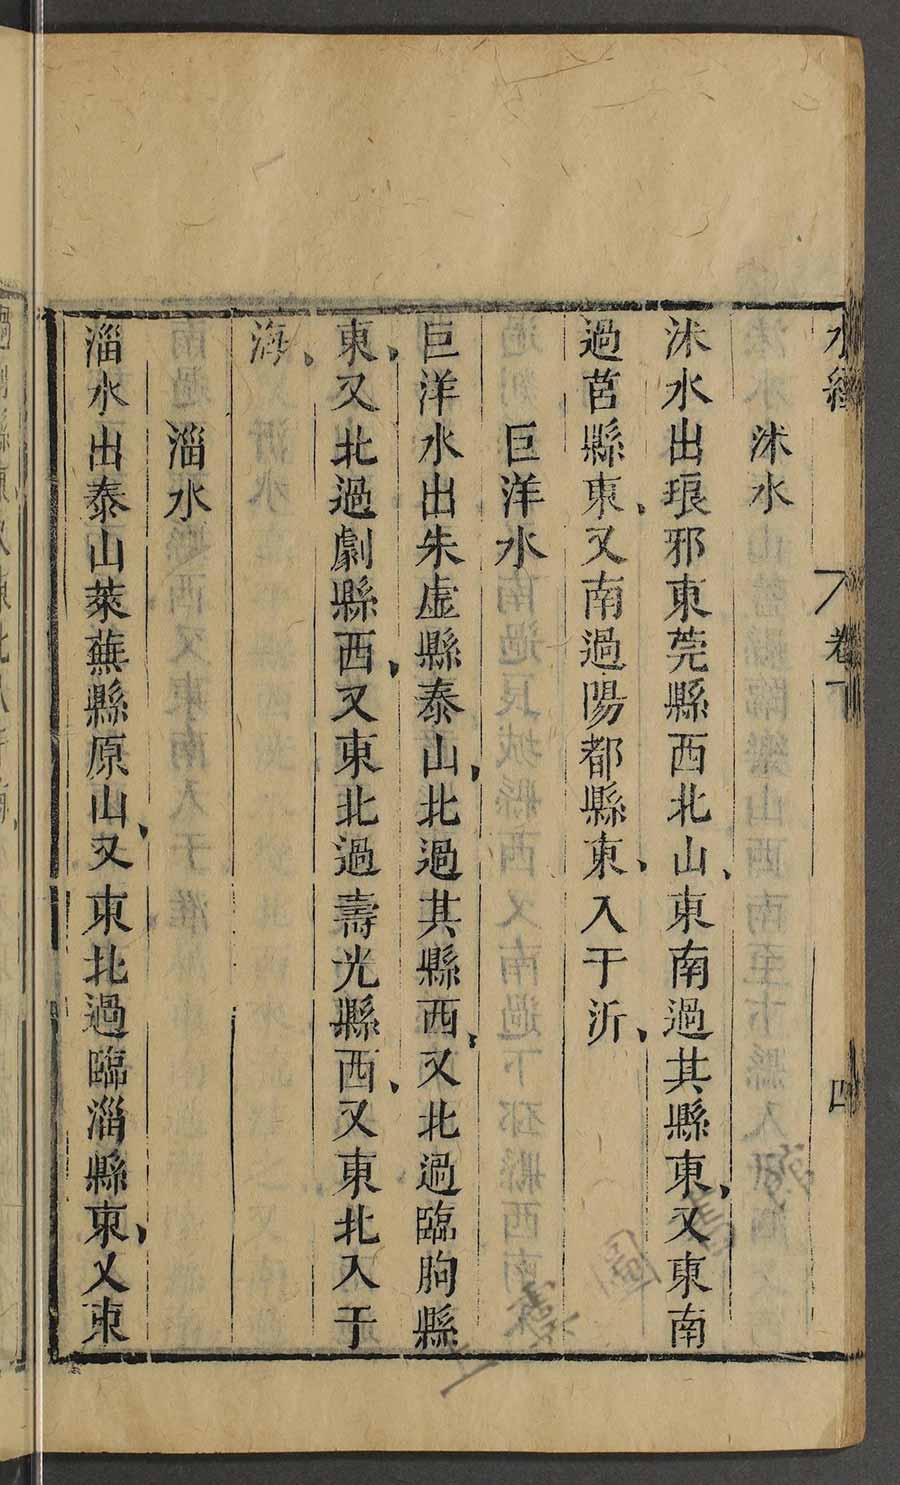 水經 卷下 四
沭水
沭水出琅邪東莞縣西北山、東南過其縣東、又東南
過莒縣東、又南過陽都縣東、入于沂、
巨洋水
巨洋水出朱虛縣泰山、北過其縣西、又北過臨朐縣
東、又北過劇縣西、又東北過壽光縣西、又東北入于
海、
淄水
淄水出泰山萊蕪縣原山、又東北過臨淄縣東、又東